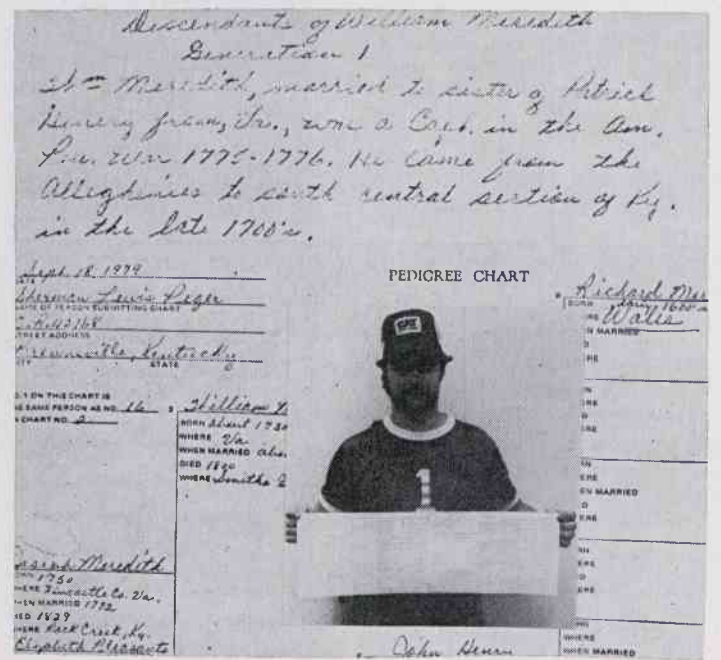 Descendants of William Meredith
Generation 1
Wm Meredith, married to sister of Patrick
Henery from, Va., was a Capt. in the Am.
Rev. War 1775-1776. He came from the
Alleghinies to south central section of Ky.
in the late 1700's.
Sept. 18, 1979
DATE
Sherman Lewis
NAME OF PERSON SUBMITTING CHART
STREET ADDRESS
Brownsville, Kentucky
STATE
NO. 1 ON THIS CHART IS
THE SAME PERSON AS NO. 16
ON CHART NO. 2
PEDIGREE CHART
8 William
BORN About 1730
WHERE Va
WHEN MARRIED
DIED 1820
WHERE Smiths
Meredith
1750
WHERE Fincastle Co. Va.
WHEN MARRIED 1772
DIED 1829
WHERE Rock Creek, Ky.
Elizabeth Pleasants
CAT
1
Richard
BORN 1600
Wales
MARRIED
WHEN MARRIED
WHERE
WHEN MARRIED
John Henry